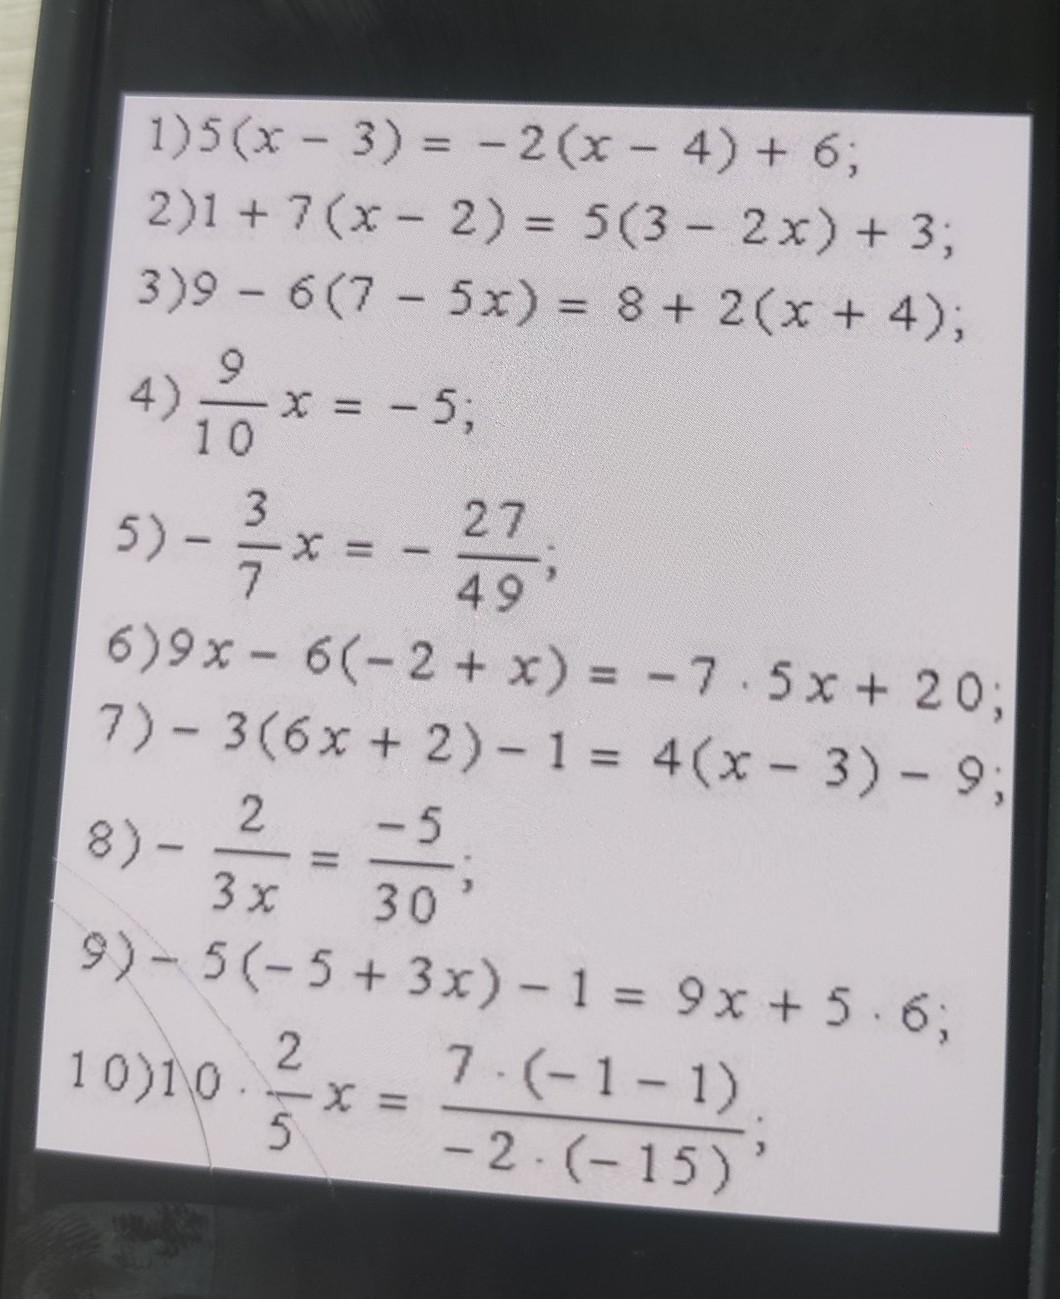 1)5(x - 3) = -2(x - 4) + 6;
2)1 + 7(x - 2) = 5(3 - 2x) + 3;
3)9 - 6(7 - 5x) = 8 + 2(x + 4);
4) 9/10 x = -5;
5) - 3/7 x = - 27/49;
6)9x - 6(-2 + x) = -7 · 5x + 20;
7) - 3(6x + 2) - 1 = 4(x - 3) - 9;
8) - 2/3x = -5/30;
9) - 5(-5 + 3x) - 1 = 9x + 5 · 6;
10)10 · 2/5 x = 7 · (-1 - 1)/-2 · (-15);